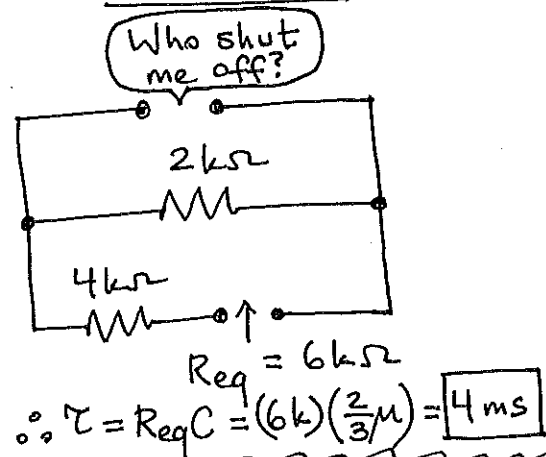 Who shut
me off?
2kΩ
4kΩ
Req = 6kΩ
∴ τ = ReqC = (6k)(2/3 μ) = 4 ms